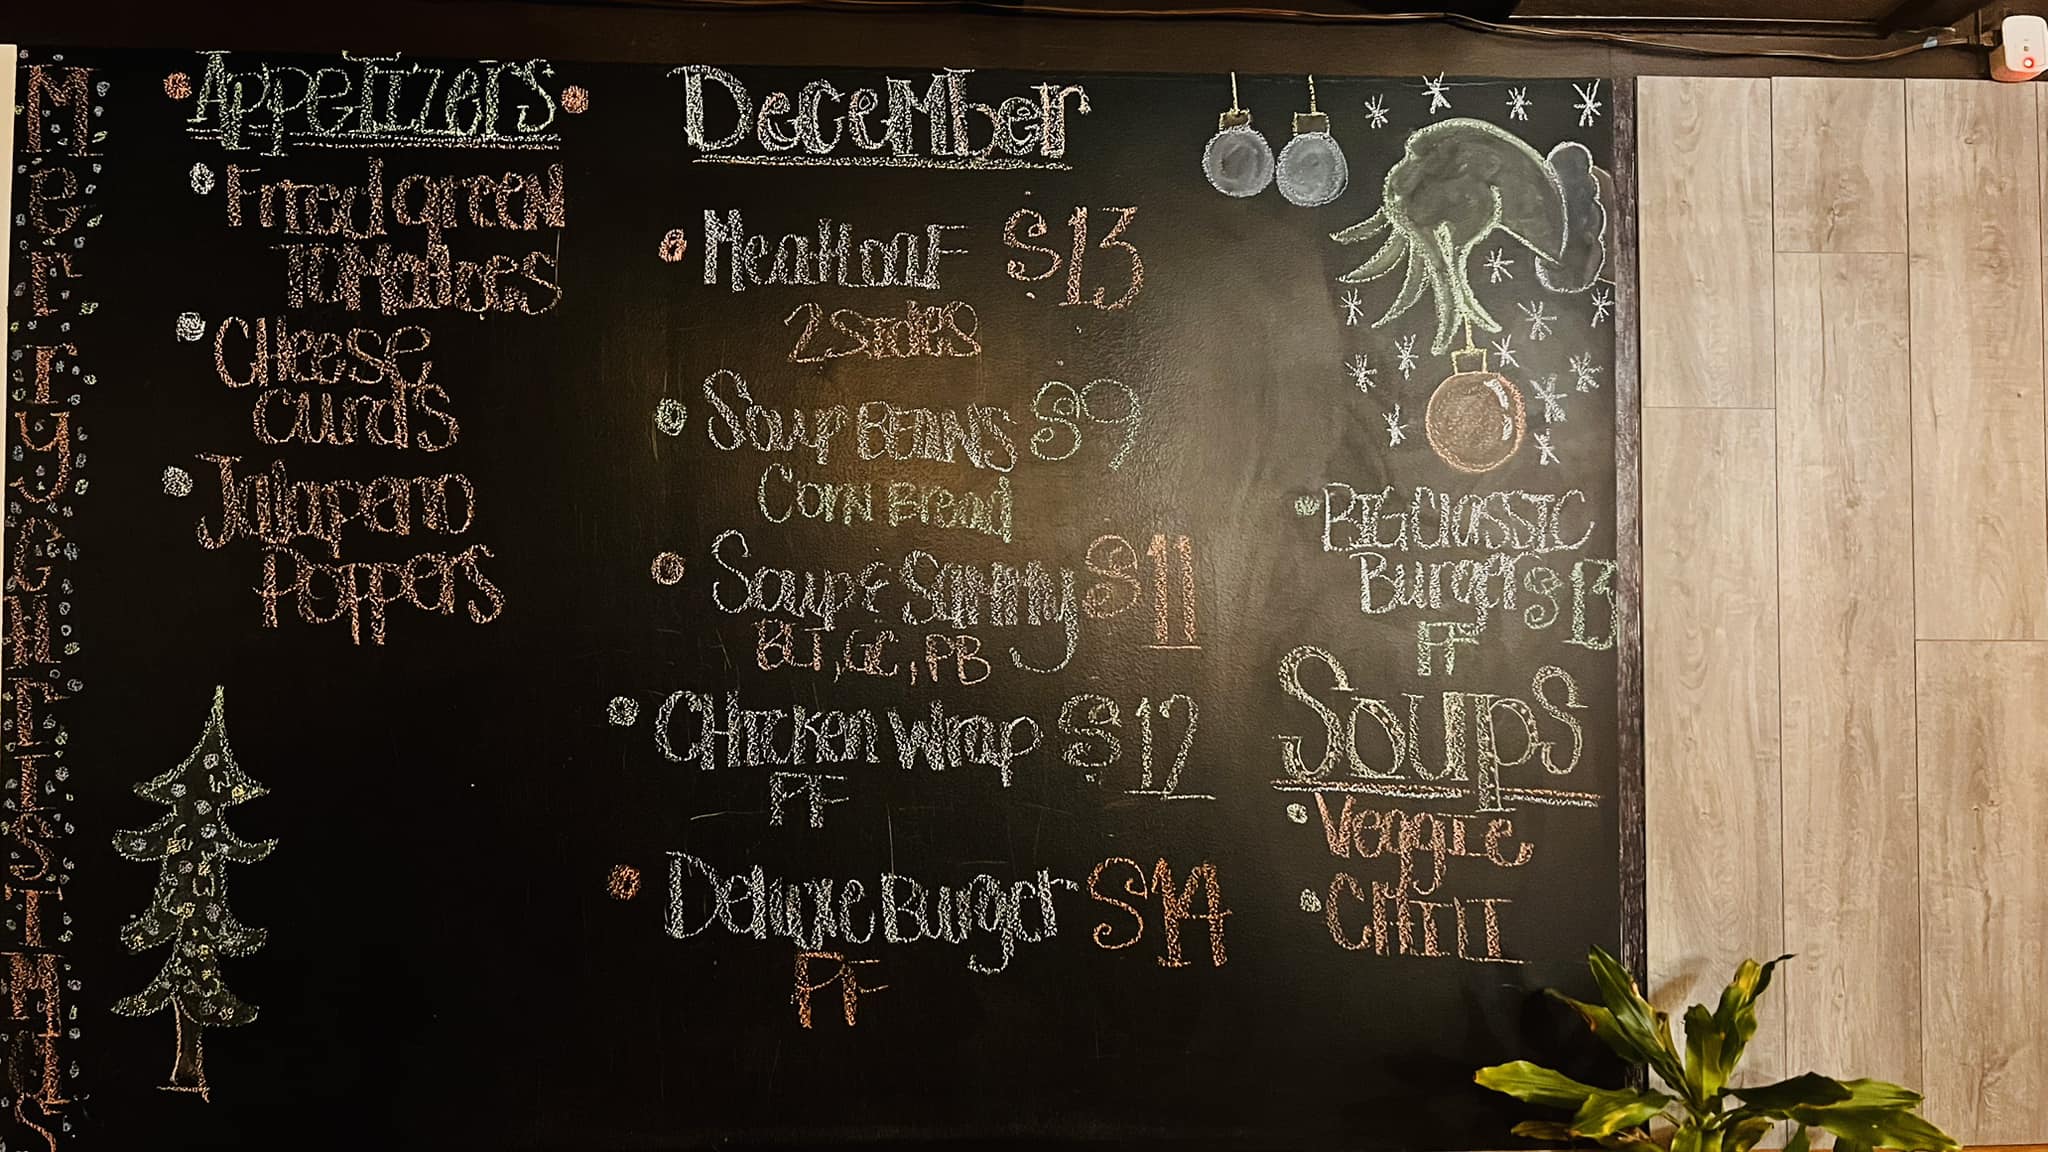 Merry Christmas
Appetizers
Fried green
Tomatoes
Cheese
curds
Jalapeno
Poppers
December
Meatloaf $13
2 Sides
Soup BEANS $9
Corn Bread
Soup & Sammy $11
BLT, GC, PB
Chicken Wrap $12
FF
Deluxe Burger $14
FF
BIG Classic
Burger $13
FF
Soups
Veggie
Chili